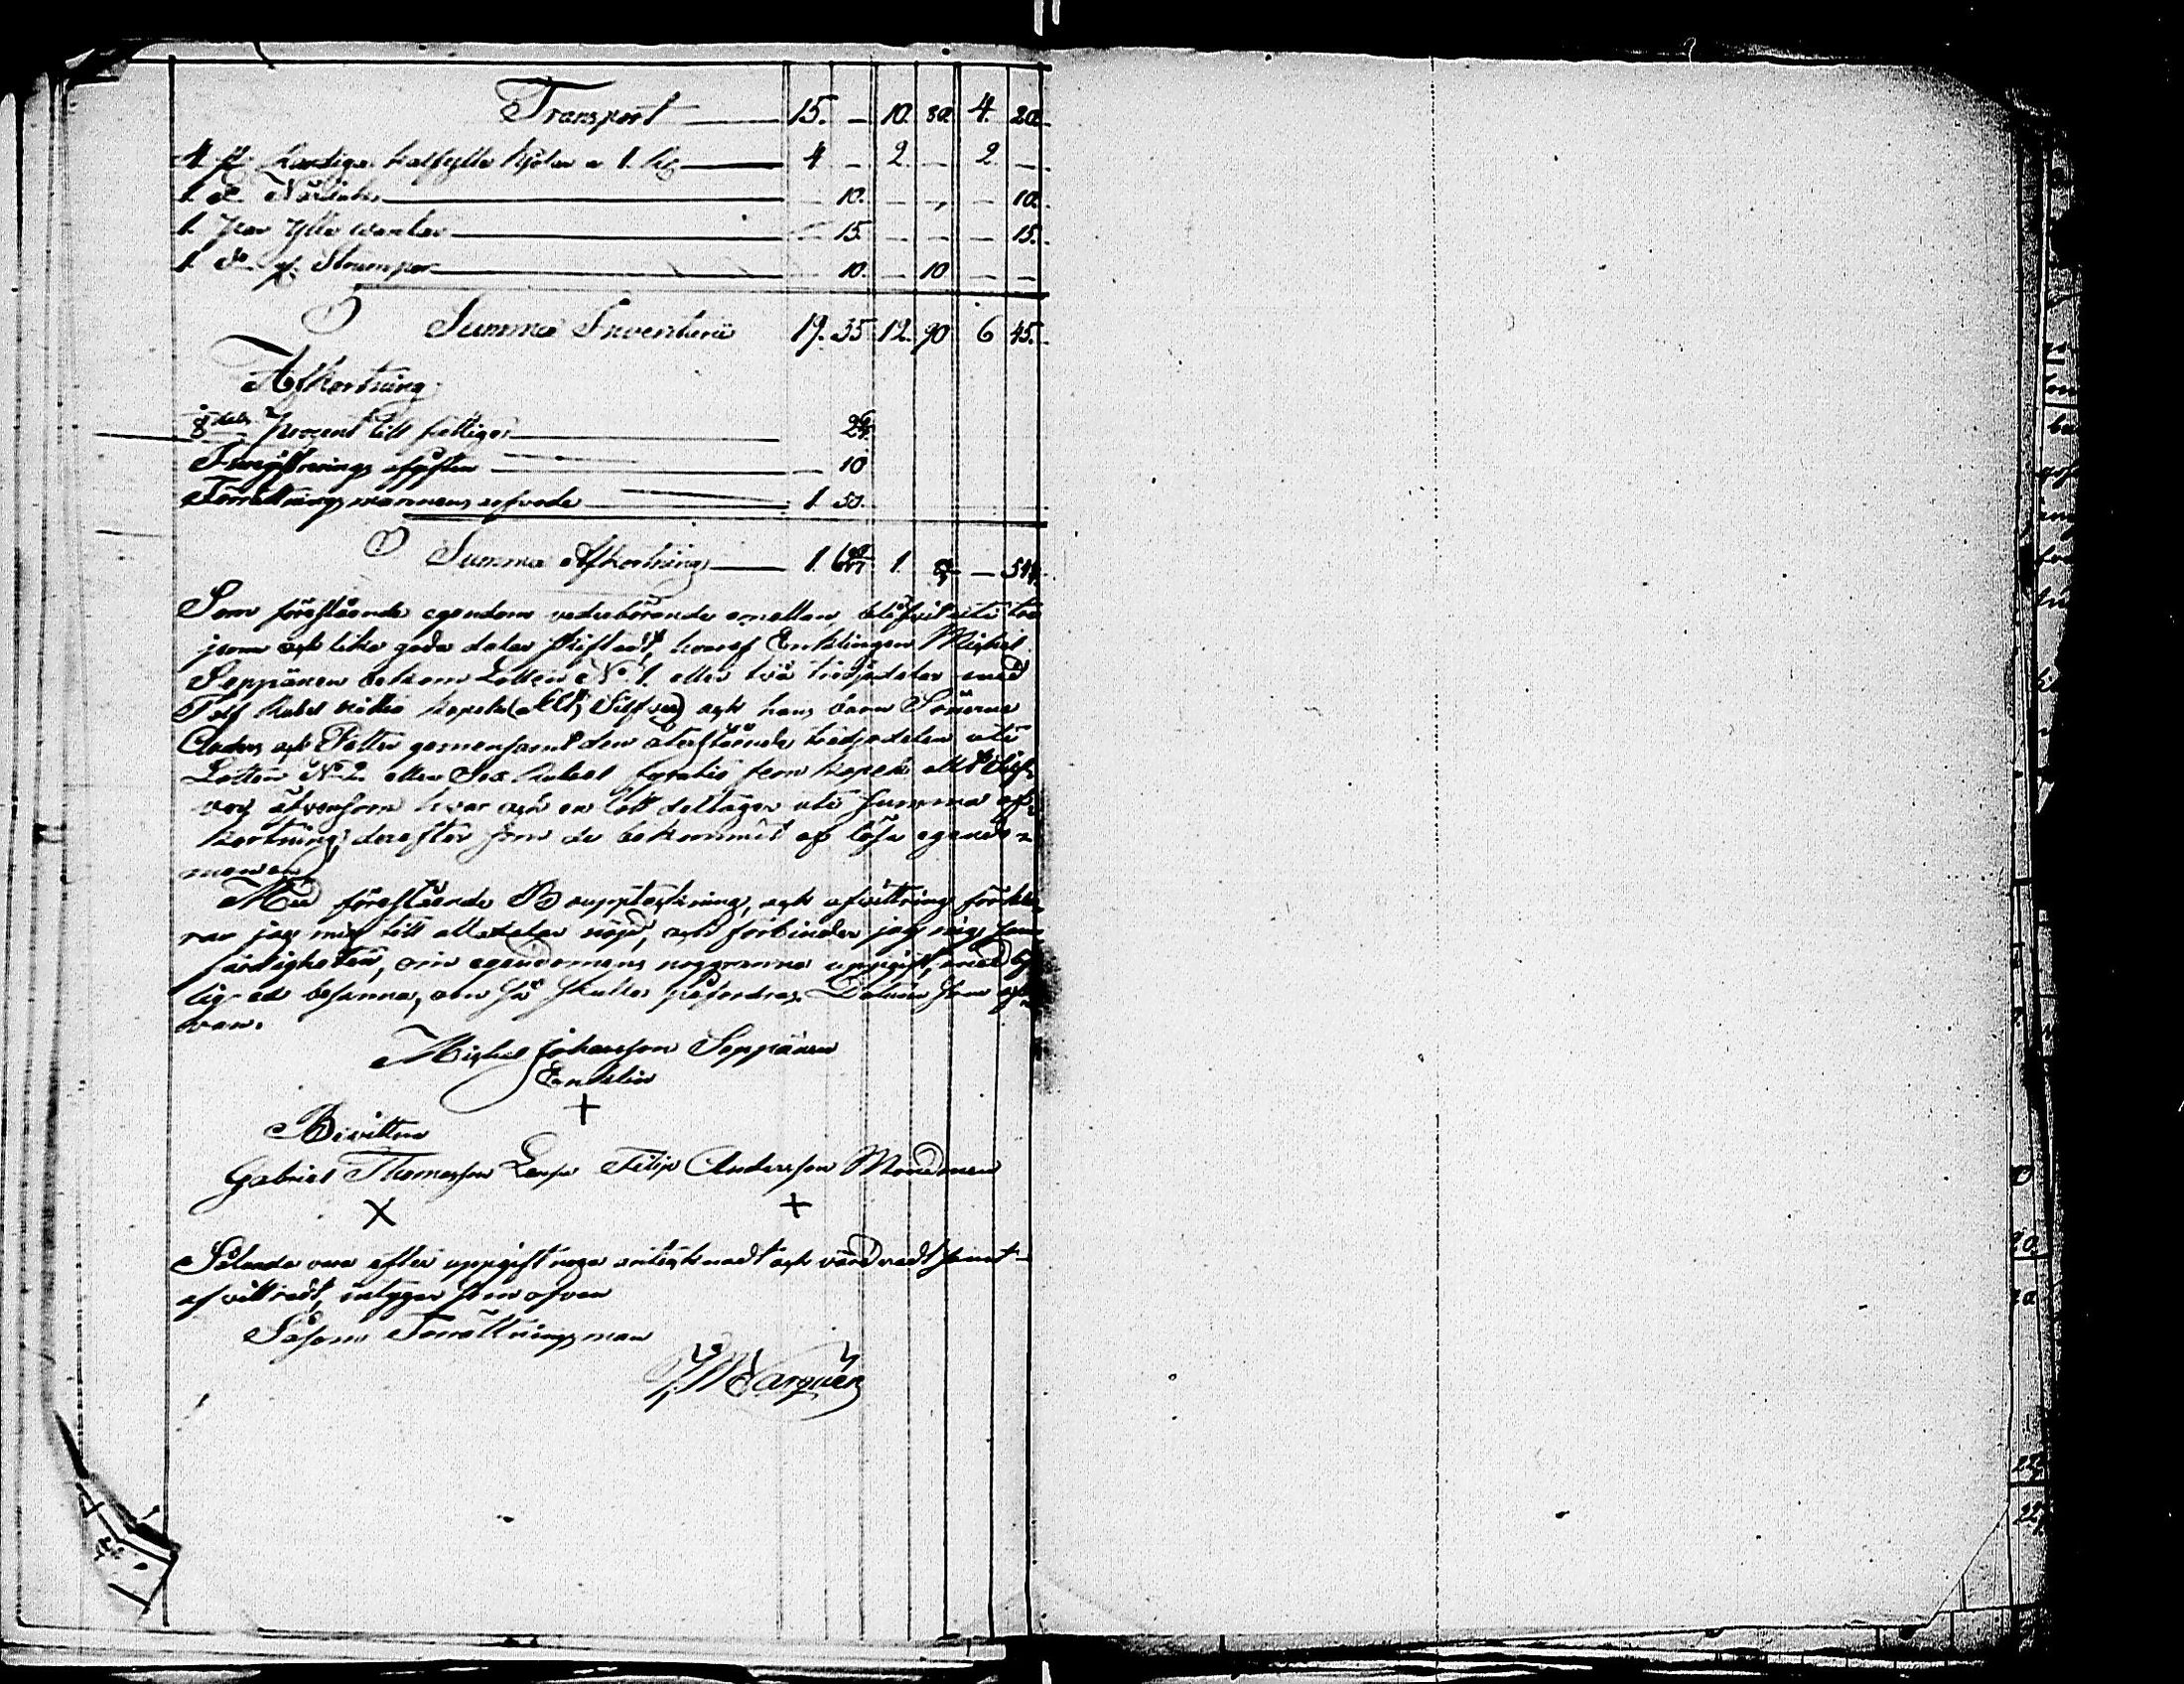 Transport 15. — 10. 80. 4. 20.
4. st. Randiga halfylle kjolar a 1. Rb 4 — 2. — 2. —
1. D. 10. — — — 10.
1. Par Ylle vantar — 15. — — — 15.
1. D:o Strumpor — 10. — 10 — —
Summa Inventarii 19. 35 12. 90 6 45.
Afkortning
1/8 dels Procent till fattiga
Inregistrerings afgiften — 10
Förrättningsmannens arfvode 1 50.
Summa Afkortning 1. 1. —
Som förestående egendom vederbörande emellan, blifvit uti tre
jemn och lika goda delar skiftadt, hvaraf Enklingen Michel
Seppänen bekom Lotten N:o 1. eller två tredjedelar med
Tolf Rubel nittio kopek (allt Silfver) och hans barn Sönerne
Anders och Petter gemensamt den återstående tredjedelen uti
Lotten N:o 2. eller Sex Rubel fyratio fem kopek allt Silf-
ver, äfvensom hvar och en lott deltager uti summa af-
kortning derefter som de bekommit af lösa egendo-
men.
Med förestående Boupptekning, och afvittring förkla-
rar jag mig till alla delar nöjd, och förbinder jag mig san-
färdigheten, om egendomens noggranna uppgift, med
lig ed besanna, om så skulle påfordras. Datum som of-
van.
Michel Johansson Seppänen
Enklin
+
Bevittna
Gabriel Thomasson Filip Andersson
X +
Sålunda vara efter uppgift noga antecknadt och värderadt samt
afvittradt, intygar som ofvan
Såsom Förrättningsman